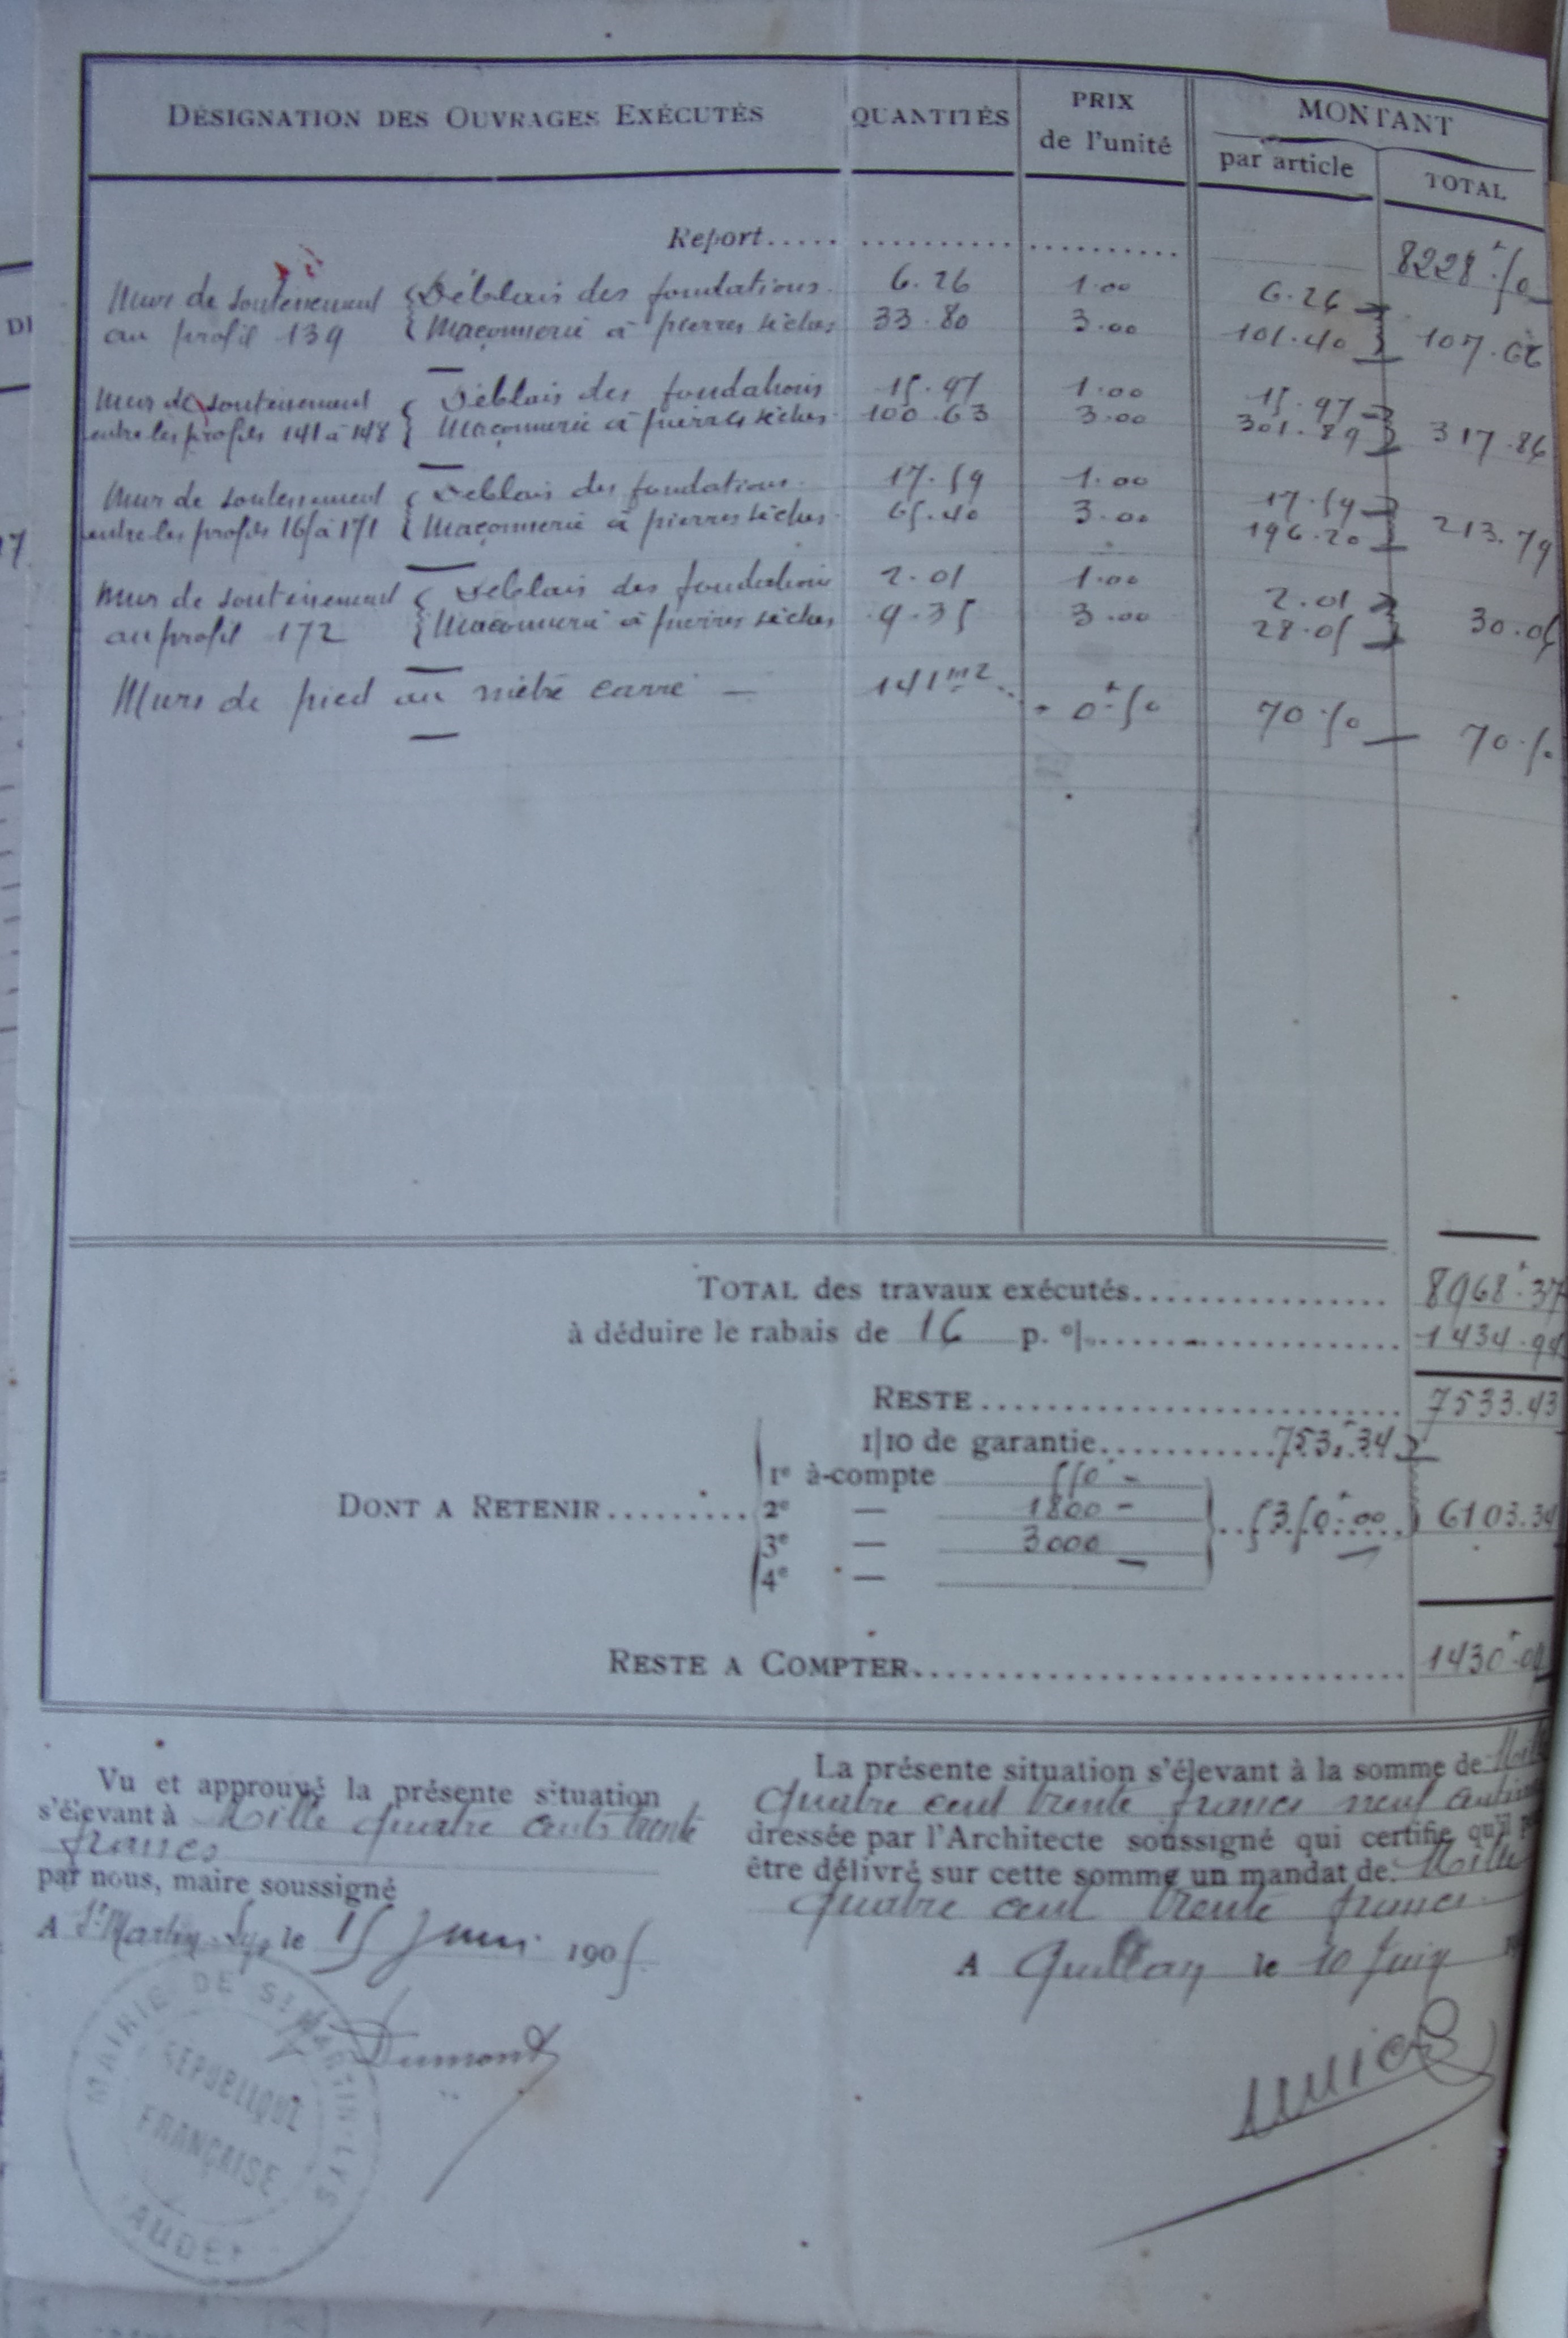 DÉSIGNATION DES OUVRAGES EXÉCUTÉS QUANTITÉS PRIX de l'unité MONTANT
par article TOTAL
Report 8228.50
Murs de soutènement au profil 139 { Déblais des fondations. 6.26 1.00 6.26
Maçonnerie à pierres sèches 33.80 3.00 101.40 107.66
Mur de soutènement entre les profils 141 à 148 { Déblais des fondations 15.97 1.00 15.97
Maçonnerie à pierres sèches 100.63 3.00 301.89 317.86
Mur de soutènement entre les profils 165 à 171 { Déblais des fondations 17.59 1.00 17.59
Maçonnerie à pierres sèches 65.40 3.00 196.20 213.79
Mur de soutènement au profil 172 { Déblais des fondations 2.01 1.00 2.01
Maçonnerie à pierres sèches 9.35 3.00 28.05 30.06
Murs de pied au mètre carré — 141 m2 0f.50 70.50 70.50
TOTAL des travaux exécutés 8968.37
à déduire le rabais de 16 p. % 1434.94
RESTE 7533.43
1/10 de garantie 753.34
DONT A RETENIR
1e à-compte 550 -
2e — 1800 -
3e — 3000 5350.00 6103.34
4e —
RESTE A COMPTER 1430.09
Vu et approuvé la présente situation
s'élevant à Mille quatre cents trente
francs
par nous, maire soussigné
A St Martin-Lys le 15 Juin 1905
Dumont
MAIRIE DE ST MARTIN-LYS
RÉPUBLIQUE
FRANÇAISE
AUDE
La présente situation s'élevant à la somme de Mille
quatre cent trente francs neuf centimes
dressée par l'Architecte soussigné qui certifie qu'il
être délivré sur cette somme un mandat de Mille
quatre cent trente francs
A Quillan le 10 Juin